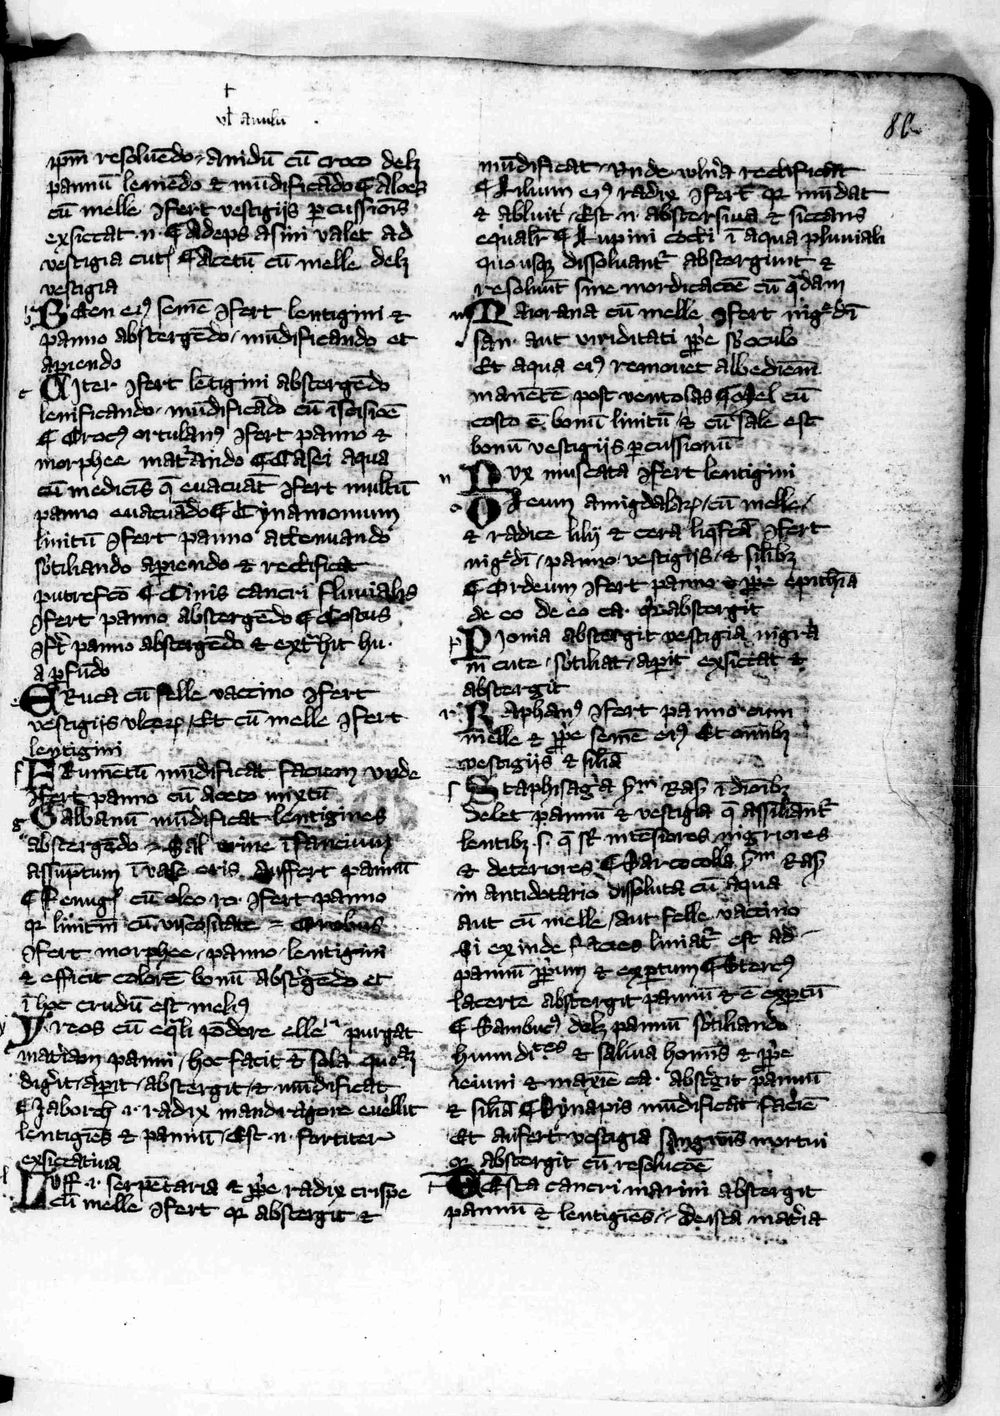 vl' amilu
86
ip̄m resoluēdo · amidū cū croco delz
pannū leniēdo ⁊ mūdificādo ¶ Aloes
cū melle ɔfert vestigijs ꝑcussionis
exsiccat .n. ¶ Adeps asini valet ad
vestigia cut' ¶ Acetū cū melle delz
vestigia
b Been eiꝰ semē ɔfert lentigini ⁊
panno abstergēdo / mūdificando et
aꝑiendo
c Citer ɔfert lētigini abstergēdo
lenificando · mūdificādo cū īcisiōe
¶ Crocꝰ ortulanꝰ ɔfert panno ⁊
morphee mat'ando ¶ Casei aqua
cū medicīs q̄ euacuāt ɔfert multū
panno euacuādo ¶ Cynamomum
linitū ɔfert panno attenuando
sb'tiliando aꝑiendo ⁊ rectificat
putrefc̄o ¶ Cinis cancri fluuialis
ɔfert panno abstergēdo ¶ Costus
ɔfr̄t panno abstergēdo ⁊ ext'hit hu·
a ꝓfūdo
e ERuca cū felle vaccino ɔfert
vestigijs vlceꝝ / Et cū melle ɔfert
lentigini
f FRumētū mūdificat faciem vnde
ɔfert panno cū aceto mixtū
g Galbanū mūdificat lentigines
abstergēdo ⁊ Sal vrine īfancium
assūptum ī vase eris auffert pannū
¶ Fenug' cū oleo ro· ɔfert panno
qr linitm̄ cū viscositate ⁊ Orobus
ɔfert morphee · panno · lentigini
⁊ efficit colorē bonū abst'gēdo et
ī hoc crudū est meliꝰ
y Yreos cū eq̄li pōdere elle' purgat
mat'iam panni / hoc facit ⁊ sola
dig'it · aꝑit · abstergit · ⁊ mūdificat
¶ Jaboroch .i. radix mandragore euellit
lentigīes ⁊ pannū / Est .n. fortiter
exsiccatiua
l Luff .i. serpētaria ⁊ ꝓpe radix crispe
cū melle ɔfert qr abstergit ⁊
mūdificat · Vnde vln'a rectificat
¶ Lilium eiꝰ radix ɔfert qr mūdat
⁊ abluit · Est .n. abstersiua ⁊ siccans
equalr̄ ¶ Lupini cocti ī aqua pluuiali
quousqꝫ dissoluant' abstergunt ⁊
resoluūt sine mordicacōe cū q̄dam
m Maiorana cū melle ɔfert nig'dī
san· aut viriditati ꝓpe sb' oculo
Et aqua eiꝰ remouet albedinem
manētē post ventosas ¶ Mel cū
costo ē bonū linitū / ⁊ cū sale est
bonū vestigijs ꝑcussionū
n Nvx muscata ɔfert lentigini
o Oleum amigdalaꝝ / cū melle /
⁊ radice lilij ⁊ cera liq̄fc̄a ɔfert
nig'dī / panno · vestigijs · ⁊ silībꝫ
¶ Ordeum ɔfert panno ⁊ ꝓpe epithīa
de eo de eo ca· qr abstergit
p Pionia abstergit vestigia nigra
in cute · sb'tiliat · aꝑit exsiccat ⁊
abstergit
r Raphanꝰ ɔfert panno cum
melle ⁊ ꝓpe semē eiꝰ Et omībꝫ
vestigijs ⁊ silīa
s Staphisag'a sm̄ Rasꝫ ī
delet pannū ⁊ vestigia q̄ assiliant'
lentibꝫ .s. q̄ st' intēsiores nigriores
⁊ deteriores ¶ Sarcocolla sm̄ Rasꝫ
in antidotario dissoluta cū aqua
aut cū melle / aut felle vaccino
Si exinde facies liniat' est ad
pannū ꝓpium ⁊ exꝑtum ¶ Stercꝰ
lacerte abstergit pannū ⁊ ē exꝑtū
¶ Sambucꝰ delz pannū sb'tiliando
humidites ⁊ saliua homīs ⁊ ꝓpe
ieiuni ⁊ maxīe ca· abst'git pannū
⁊ silīa ¶ Synapis mūdificat faciē
Et aufert vestigia sangwīs mortui
qr abstergit cū resolucōe
t TEsta cancri marini abstergit
pannū ⁊ lentigīes ⁊ de ista mat'ia